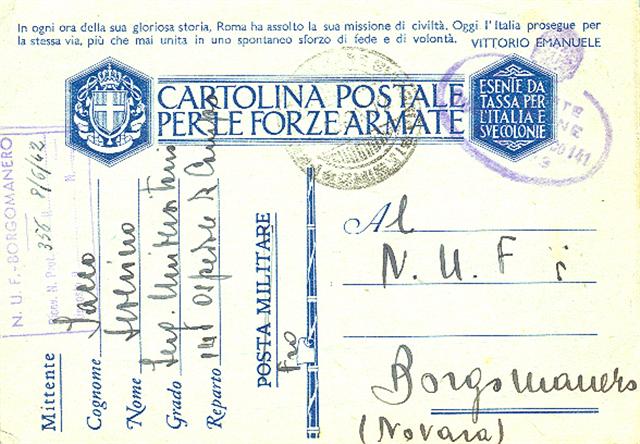 In ogni ora della sua gloriosa storia, Roma ha assolto la sua missione di civiltà. Oggi l'Italia prosegue per
la stessa via, più che mai unita in uno spontaneo sforzo di fede e di volontà. VITTORIO EMANUELE
CARTOLINA POSTALE
PER LE FORZE ARMATE
ESENTE DA
TASSA PER
L'ITALIA E
SVE COLONIE
N. U. F. - BORGOMANERO
N. Prot. 356 8/6/42
Mittente
Cognome Sacco
Nome Severino
Grado Serg.
Reparto 145 Ospedale da Campo
POSTA MILITARE
Al
N. U. F i
Borgomanero
(Novara)